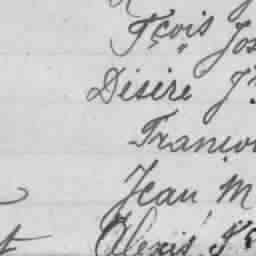 Fçois Jos
Désiré J
Françoi
Jean M
Alexis F